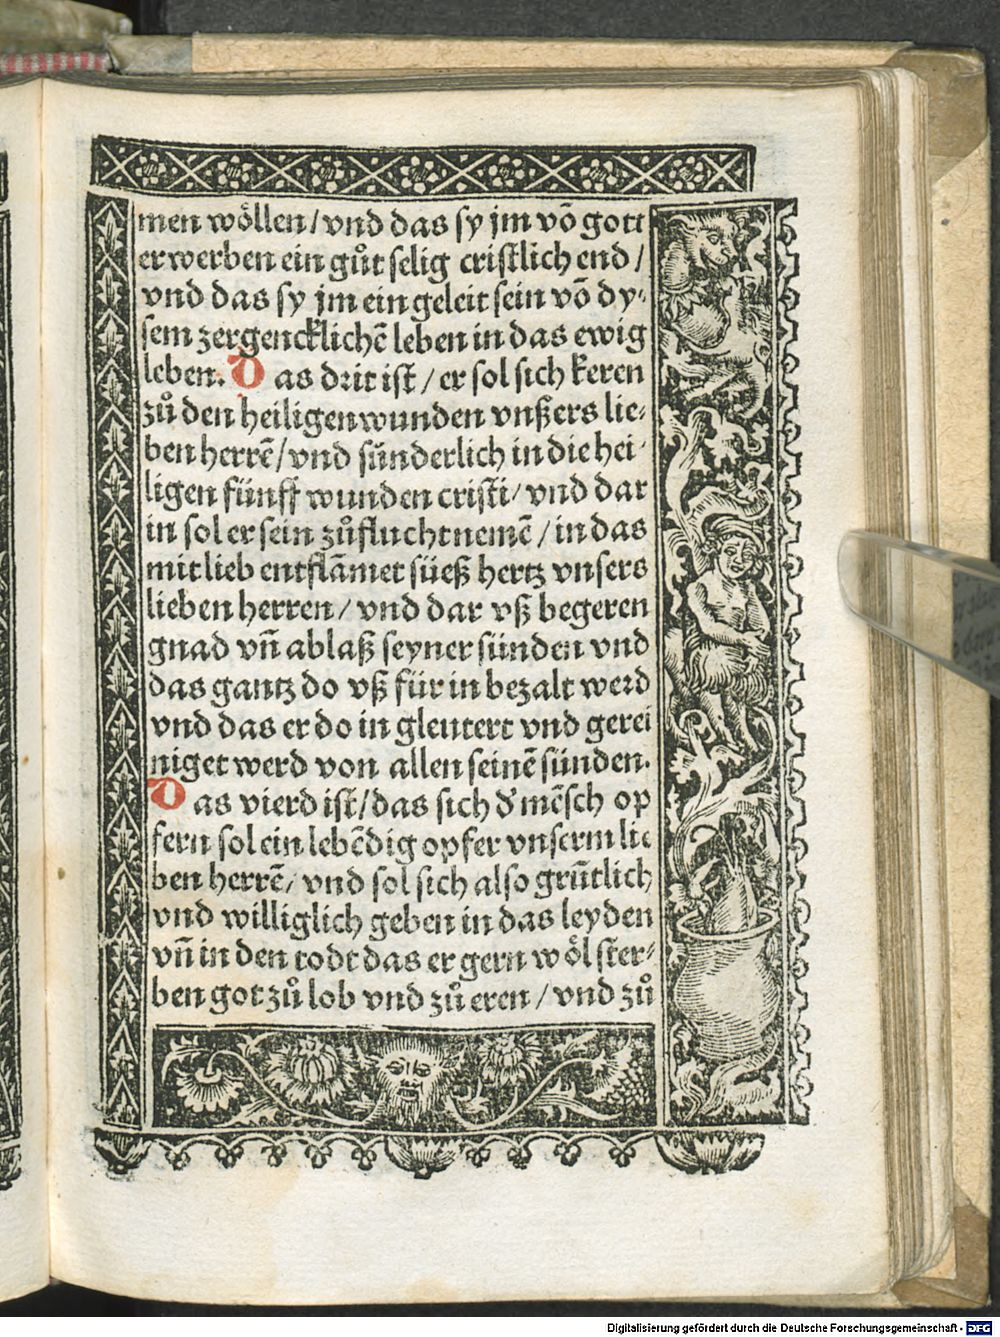 men wöllen / vnd das sy jm vō gott
erwerben ein gůt selig cristlich end /
vnd das sy jm ein geleit sein vō dy-
sem zergencklichē leben in das ewig
leben. Das drit ist / er sol sich keren
zů den heiligen wunden vnßers lie-
ben herrē / vnd sünderlich in die hei-
ligen fünff wunden cristi / vnd dar
in sol er sein zůflucht nemē / in das
mit lieb entflāmet süeß hertz vnsers
lieben herren / vnd dar vß begeren
gnad vn̄ ablaß seyner sünden vnd
das gantz do vß für in bezalt werd
vnd das er do in gleutert vnd gerei
niget werd von allen seinē sünden.
Das vierd ist / das sich d' mēsch op
fern sol ein lebēdig opfer vnserm lie
ben herrē / vnd sol sich also grūtlich
vnd williglich geben in das leyden
vn̄ in den todt das er gern wöl ster-
ben got zů lob vnd zů eren / vnd zů
Digitalisierung gefördert durch die Deutsche Forschungsgemeinschaft - DFG